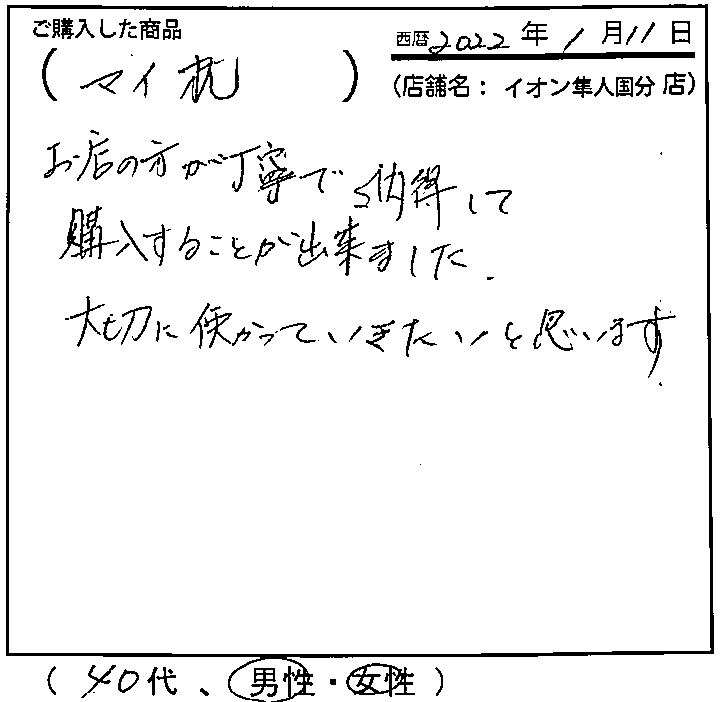 ご購入した商品
西暦2022年1月11日
(マイ枕)
(店舗名：イオン隼人国分店)
お店の方が丁寧で納得して
購入することが出来ました.
大切に使かっていきたいと思います.
(40代、男性・女性)